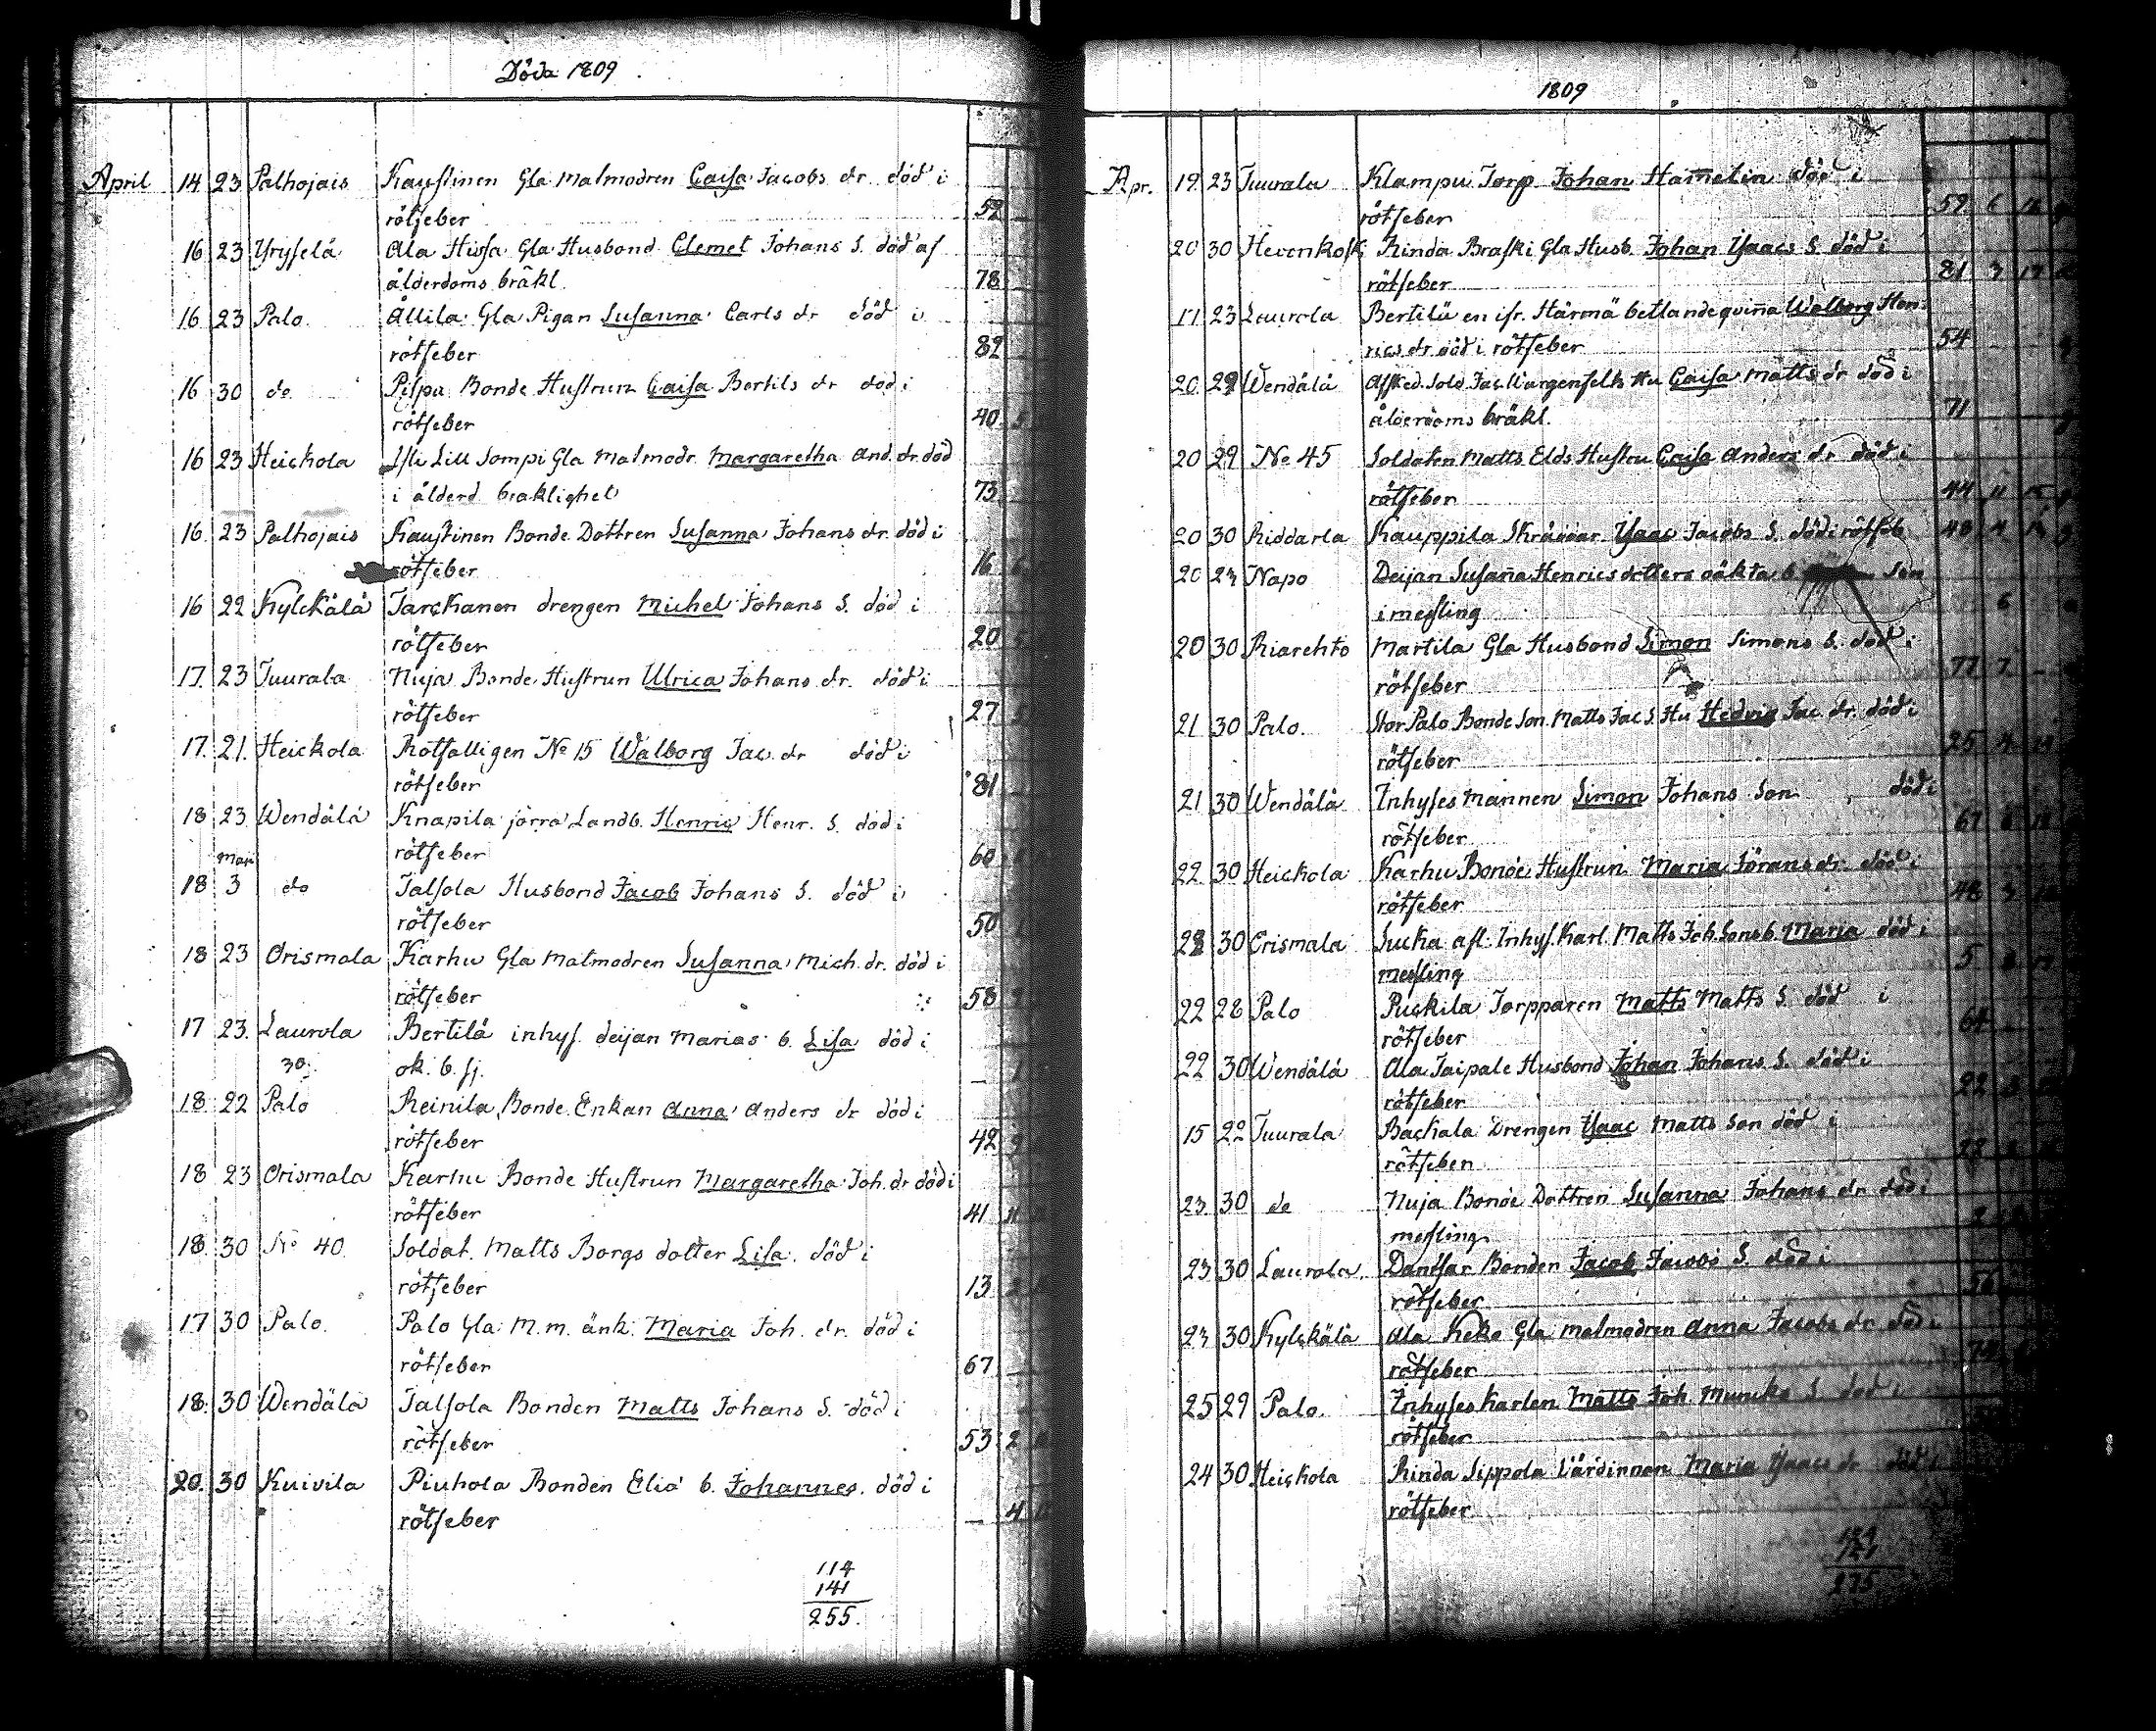 Döda 1809
April 14 23 Palhojais Kaustinen Gla Matmodren Caisa Jacobs dr död i
rötfeber 52
16 23 Yryselä Ala Hissa Gla Husbond Clemet Johans S. död af
ålderdoms bräkl. 78
16 23 Palo Ållila Gla Pigan Susanna Carls dr död i
rötfeber 82
16 30 do Pispa Bonde Hustrun Caisa Bertils dr död i
rötfeber 40 5
16 23 Heickola Lill Sompi Gla Matmodr Margaretha And. dr. död
i ålderd bräklighet 73
16 23 Palhojais Kaustinen Bonde Dottren Susanna Johans dr. död i
rötfeber 16
16 22 Kylckälä Tarckanen drengen Michel Johans S. död i
rötfeber 20
17. 23 Tuurala Nuja Bonde Hustrun Ulrica Johans dr. död i
rötfeber 27
17. 21. Heickola Rotfattigen No 15 Walborg Jac. dr död i
rötfeber 81
18 23 Wendälä Knapila jorra Landb. Henric Henr. S. död i
rötfeber 60
Maji
18 3 do Talsola Husbond Jacob Johans S. död i
rötfeber 50
18 23 Orismala Karhu Gla Matmodren Susanna Mich. dr. död i
rötfeber 58
17 23. Laurola Bertilä inhys. deijan Marias b. Lisa död i
30. ok. b. sj.
18 22 Palo Reinila Bonde Enkan Anna Anders dr död i
rötfeber 42 9
18 23 Orismala Karhu Bonde Hustrun Margaretha Joh. dr död i
rötfeber 41 11
18 30 No 40 Soldat. Matts Borgs dotter Lisa. död i
rötfeber 13
17 30 Palo. Palo Gla M.m. änk. Maria Joh. dr. död i
rötfeber 67
18. 30 Wendälä Talsola Bonden Matts Johans S. död i
rötfeber 53 2
20. 30 Kuivila Piuhola Bonden Eliä b. Johannes. död i
rötfeber 4
114
141
255.
1809
Apr. 19 23 Tuurala Klampu Torp Johan Ham̄elin död i
rötfeber 59 6
20 30 Hevonkosk Rinda Braski Gla Husb. Johan Ysaacs S. död i
rötfeber 81
17 23 Laurola Bertilä en ifr. Härmä betlande qvin̄a Walborg Hen-
rics dr död i rötfeber 54
20 29 Wendälä Afsked. Sold. Jac. Hu Caisa Matts dr död i
ålderdoms bräkl. 71
20 29 No 45 Soldaten Matts Elds Hustru Caisa Anders dr död i
rötfeber 44 11
20 30 Riddarla Kauppila Skräddar Ysaac Jacobs S. död i rötfeb 48 4
20 23 Napo Deijan Susan̄a Henrics dotters oäkta b. Son
i messling 6
20 30 Riarehto Martila Gla Husbond Simon Simons S. död i
rötfeber 77 7
21 30 Palo. Stor Palo Bonde Son Matts Jac S. Hu Hedvig Jac. dr. död i
rötfeber 25 4
21 30 Wendälä Inhyses Mannen Simon Johans Son död i
rötfeber 67
22 30 Heickola Karhu Bonde Hustrun Maria Jörans dr död i
rötfeber 48
28 30 Orismala Sucka afl. Inhys. Karl Matts Joh. Sons b. Maria död i
messling 5
22 28 Palo Puckila Torpparen Matts Matts S. död i
rötfeber 64
22 30 Wendälä Ala Taipale Husbond Johan Johans S. död i
rötfeber 22
15 22 Tuurala Backala Drengen Ysaac Matts Son död i
rötfeber
23 30 do Nuja Bonde Dottren Susanna Johans dr död i
messling
23 30 Laurola Dantsar Bonden Jacob Jacobs S. död i
rötfeber 56
23 30 Kylckälä Ala Keko Gla Matmodren Anna Jacobs dr död i
rötfeber
25 29 Palo. Inhyses Karlen Matts Joh. S. död i
rötfeber
24 30 Heickola Rinda Sippola Värdinnan Maria Ysaacs dr död i
rötfeber